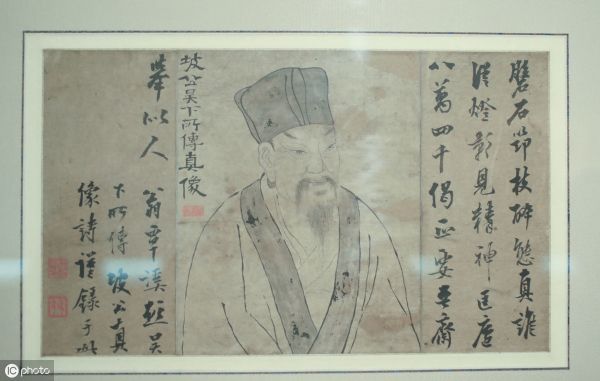 石節杖醉態真誰
從燈影見精神匡廬
八萬四千偈正要齋
坡公吳下所傳真像
舉似人 翁覃溪題吳
下所傳坡公真
像詩謹錄于此
iC photo